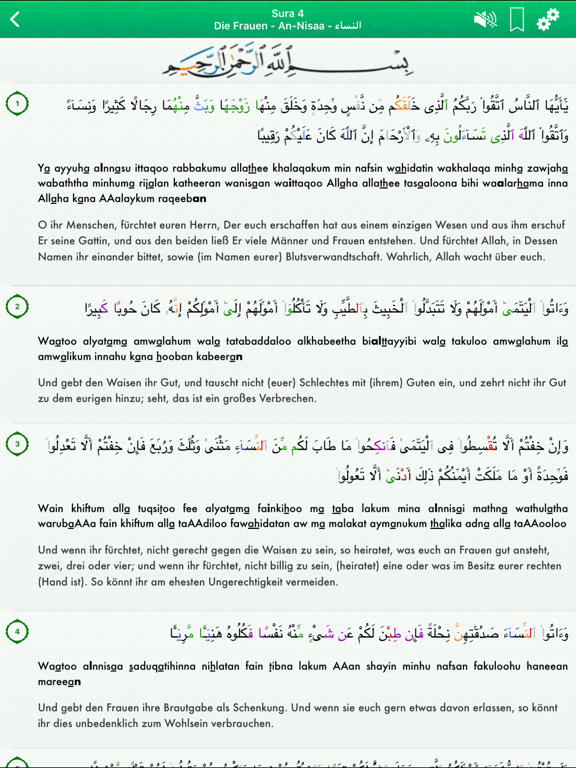 Sura 4
Die Frauen - An-Nisaa - النساء
بِسْمِ ٱللَّهِ ٱلرَّحْمَٰنِ ٱلرَّحِيمِ
1
يَٰٓأَيُّهَا ٱلنَّاسُ ٱتَّقُوا۟ رَبَّكُمُ ٱلَّذِى خَلَقَكُم مِّن نَّفْسٍ وَٰحِدَةٍ وَخَلَقَ مِنْهَا زَوْجَهَا وَبَثَّ مِنْهُمَا رِجَالًا كَثِيرًا وَنِسَآءً
وَٱتَّقُوا۟ ٱللَّهَ ٱلَّذِى تَسَآءَلُونَ بِهِۦ وَٱلْأَرْحَامَ إِنَّ ٱللَّهَ كَانَ عَلَيْكُمْ رَقِيبًا
Ya ayyuha alnnasu ittaqoo rabbakumu allathee khalaqakum min nafsin wahidatin wakhalaqa minha zawjaha
wabaththa minhuma rijalan katheeran wanisaan waittaqoo Allaha allathee tasaaloona bihi waalarhama inna
Allaha kana AAalaykum raqeeban
O ihr Menschen, fürchtet euren Herrn, Der euch erschaffen hat aus einem einzigen Wesen und aus ihm erschuf
Er seine Gattin, und aus den beiden ließ Er viele Männer und Frauen entstehen. Und fürchtet Allah, in Dessen
Namen ihr einander bittet, sowie (im Namen eurer) Blutsverwandtschaft. Wahrlich, Allah wacht über euch.
2
وَءَاتُوا۟ ٱلْيَتَٰمَىٰٓ أَمْوَٰلَهُمْ وَلَا تَتَبَدَّلُوا۟ ٱلْخَبِيثَ بِٱلطَّيِّبِ وَلَا تَأْكُلُوٓا۟ أَمْوَٰلَهُمْ إِلَىٰٓ أَمْوَٰلِكُمْ إِنَّهُۥ كَانَ حُوبًا كَبِيرًا
Waatoo alyatama amwalahum wala tatabaddaloo alkhabeetha bialttayyibi wala takuloo amwalahum ila
amwalikum innahu kana hooban kabeeran
Und gebt den Waisen ihr Gut, und tauscht nicht (euer) Schlechtes mit (ihrem) Guten ein, und zehrt nicht ihr Gut
zu dem eurigen hinzu; seht, das ist ein großes Verbrechen.
3
وَإِنْ خِفْتُمْ أَلَّا تُقْسِطُوا۟ فِى ٱلْيَتَٰمَىٰ فَٱنكِحُوا۟ مَا طَابَ لَكُم مِّنَ ٱلنِّسَآءِ مَثْنَىٰ وَثُلَٰثَ وَرُبَٰعَ فَإِنْ خِفْتُمْ أَلَّا تَعْدِلُوا۟
فَوَٰحِدَةً أَوْ مَا مَلَكَتْ أَيْمَٰنُكُمْ ذَٰلِكَ أَدْنَىٰٓ أَلَّا تَعُولُوا۟
Wain khiftum alla tuqsitoo fee alyatama fainkihoo ma taba lakum mina alnnisai mathna wathulatha
warubaAAa fain khiftum alla taAAdiloo fawahidatan aw ma malakat aymanukum thalika adna alla taAAooloo
Und wenn ihr fürchtet, nicht gerecht gegen die Waisen zu sein, so heiratet, was euch an Frauen gut ansteht,
zwei, drei oder vier; und wenn ihr fürchtet, nicht billig zu sein, (heiratet) eine oder was im Besitz eurer rechten
(Hand ist). So könnt ihr am ehesten Ungerechtigkeit vermeiden.
4
وَءَاتُوا۟ ٱلنِّسَآءَ صَدُقَٰتِهِنَّ نِحْلَةً فَإِن طِبْنَ لَكُمْ عَن شَىْءٍ مِّنْهُ نَفْسًا فَكُلُوهُ هَنِيٓـًٔا مَّرِيٓـًٔا
Waatoo alnnisaa saduqatihinna nihlatan fain tibna lakum AAan shayin minhu nafsan fakuloohu haneean
mareean
Und gebt den Frauen ihre Brautgabe als Schenkung. Und wenn sie euch gern etwas davon erlassen, so könnt
ihr dies unbedenklich zum Wohlsein verbrauchen.